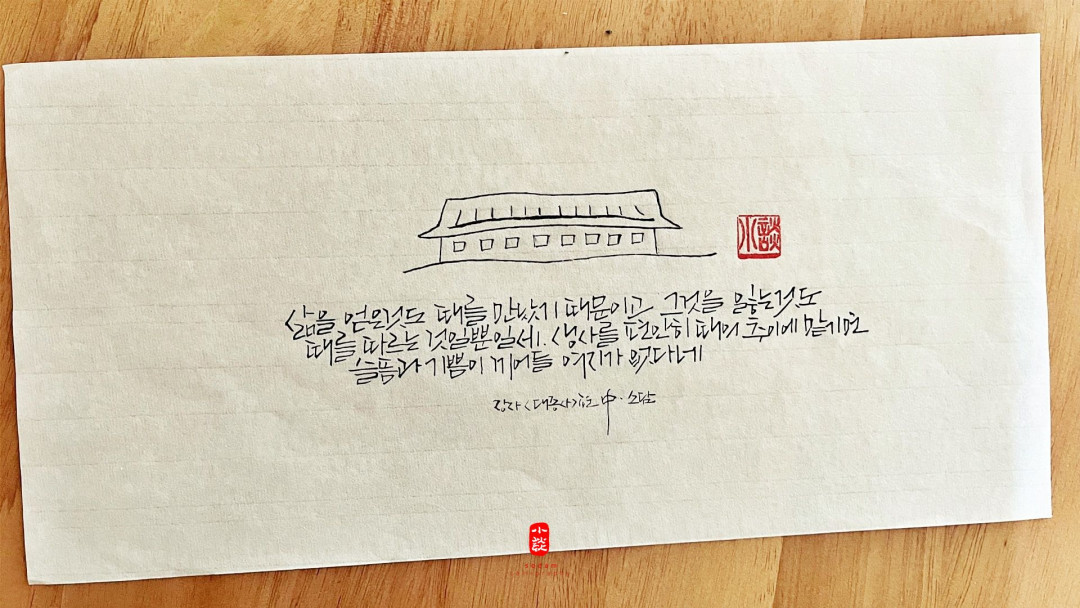 小談
삶을 얻은것도 때를 만났기 때문이고 그것을 잃는것도
때를 따르는 것일뿐일세. 생사를 편안히 때의 추이에 맡기면
슬픔과 기쁨이 끼어들 여지가 없다네
장자<대종사>편 中·소담
小談
sodam